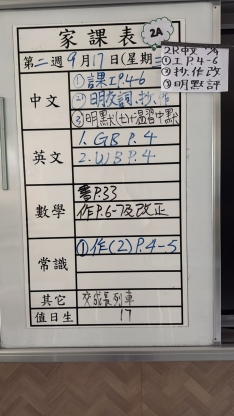 家課表
2A
第二週9月17日(星期二
中文
①課工P.4-6
②明交詞、抄、作
③明默(七)+溫習中默
2R中文
①工P.4-6
②抄.作改
③明默評
英文
1. GB P.4
2. WB P.4
數學
書P.33
作P.6-7及改正
常識
①作(2)P.4-5
其它
交成長列車
值日生
17